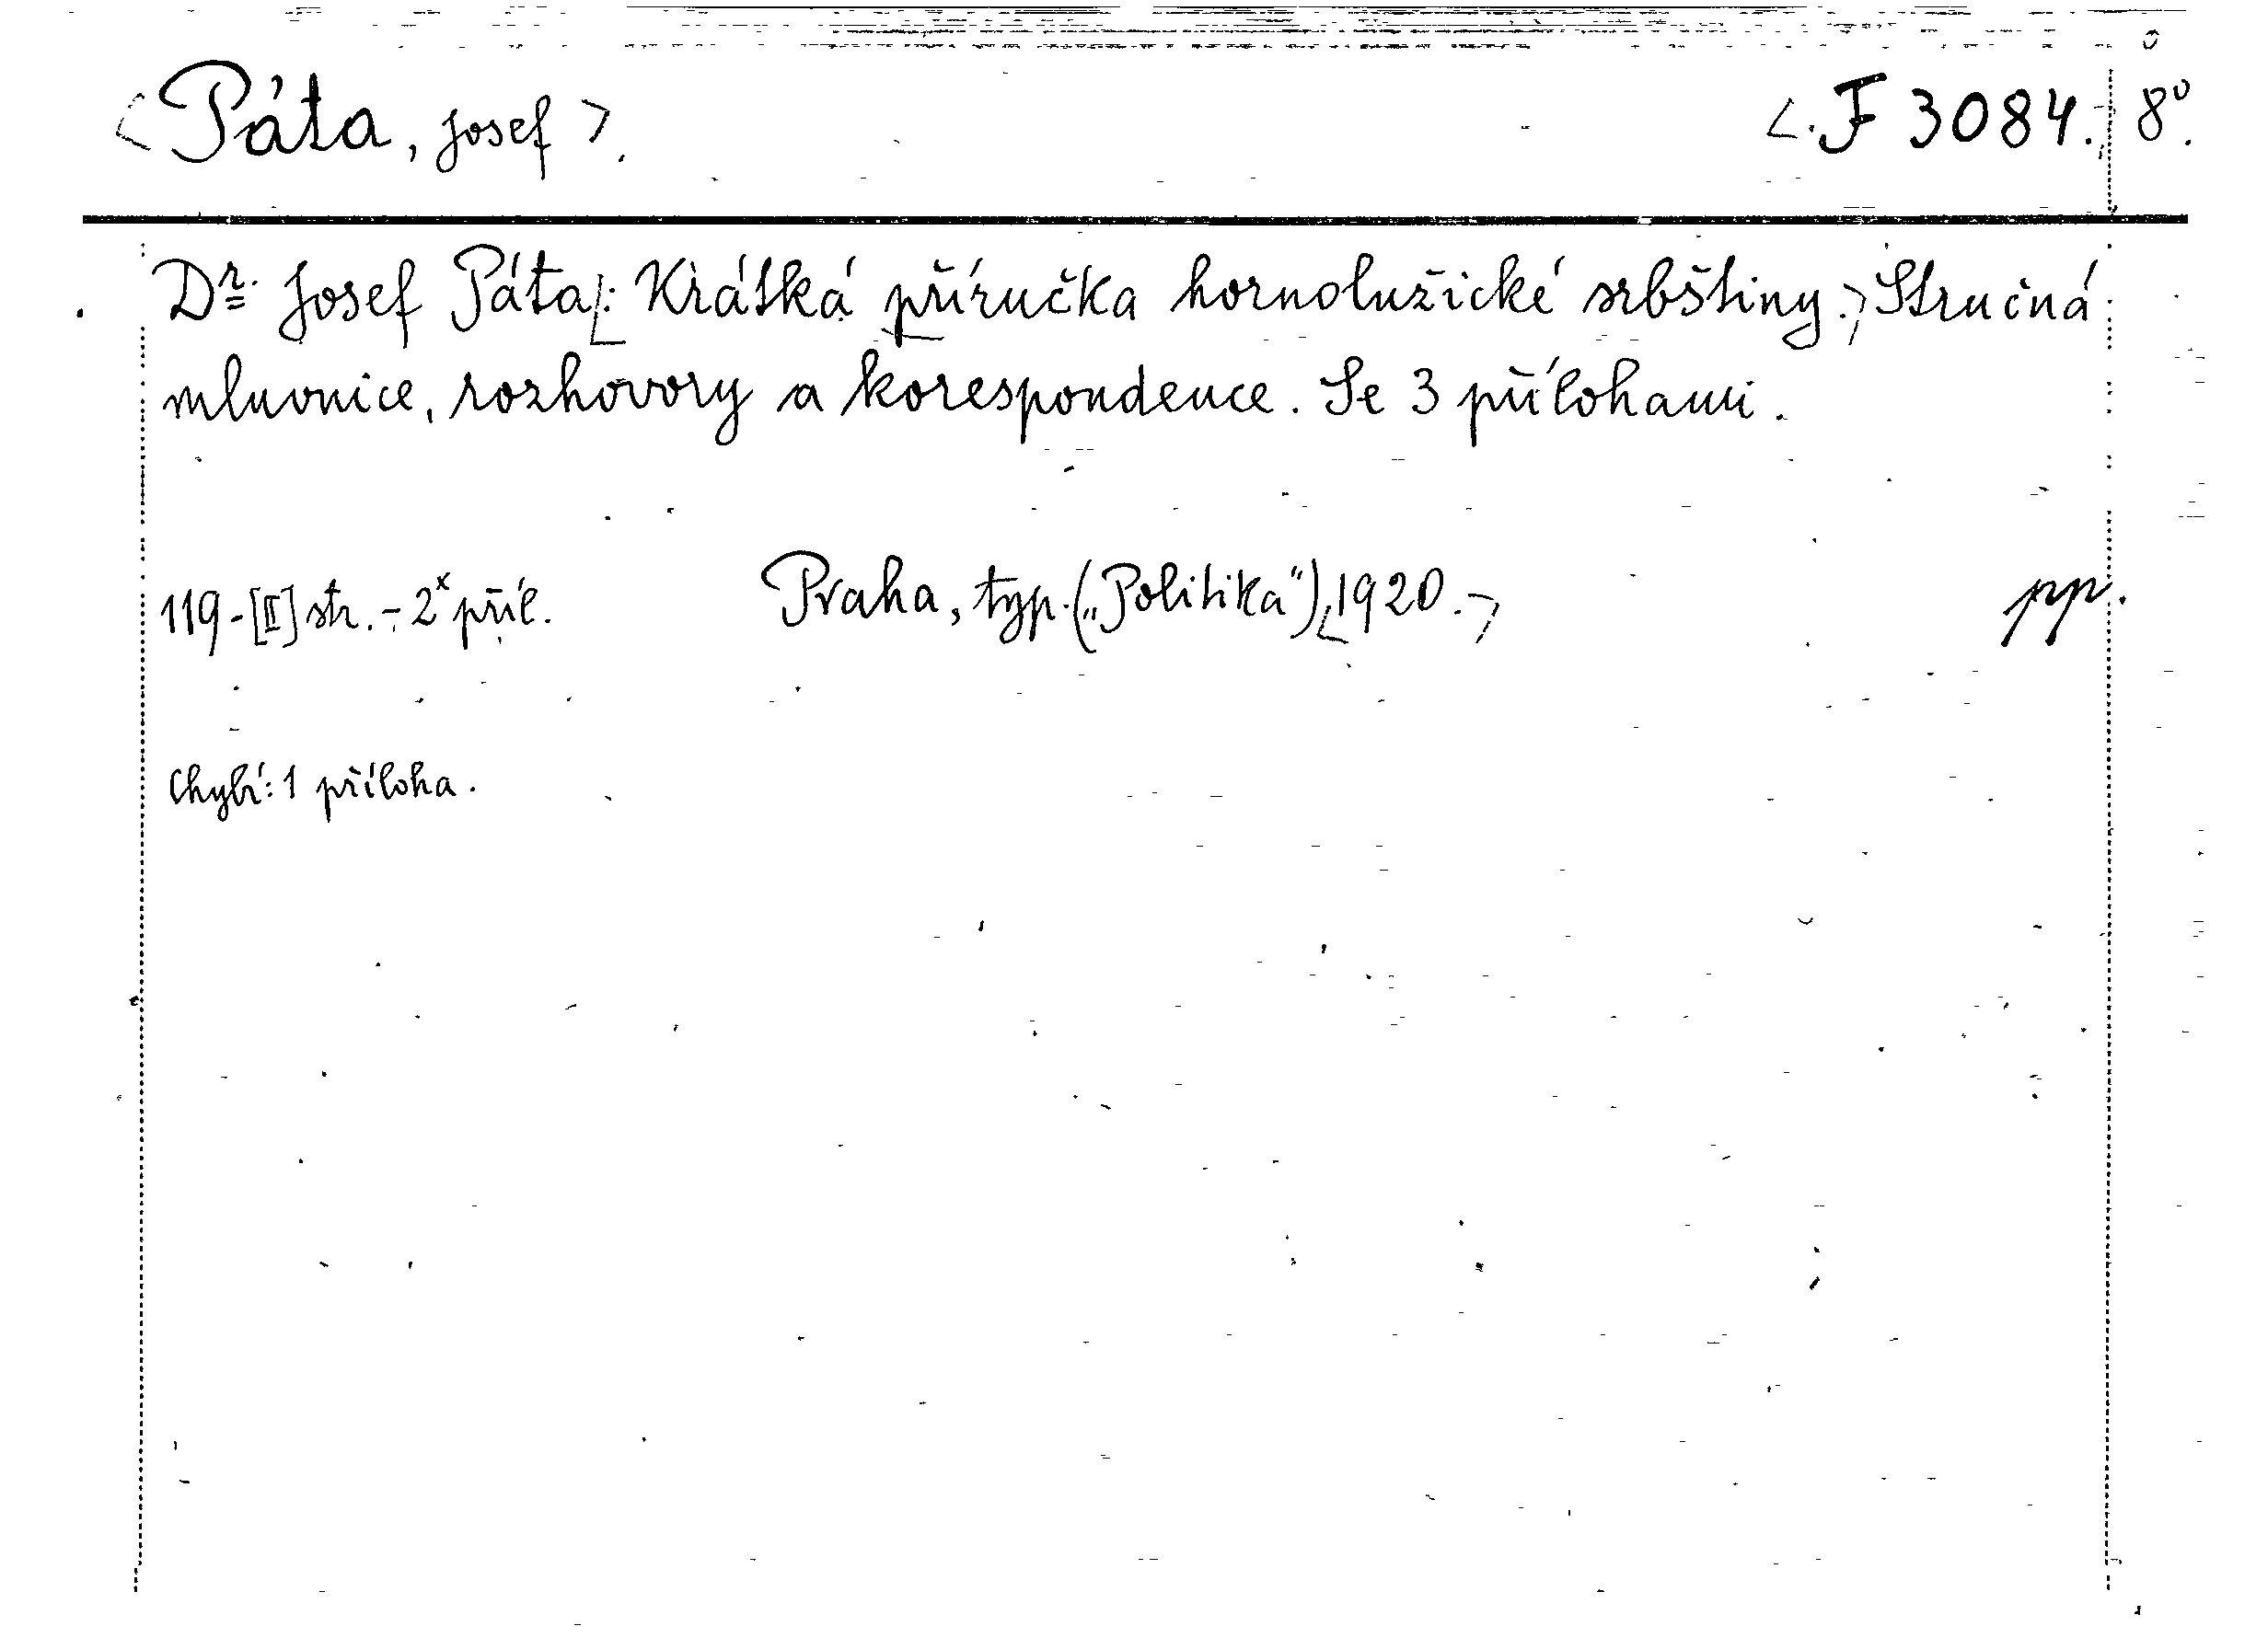 <Páta, Josef>. <F 3084.> 8º.
Dr. Josef Páta[: Krátká příručka hornolužické srbštiny.] Stručná
mluvnice, rozhovory a korespondence. Se 3 přílohami.
119-[II] str. - 2x příl. Praha, typ. („Politika“), [1920.-] pp.
Chybí: 1 příloha.